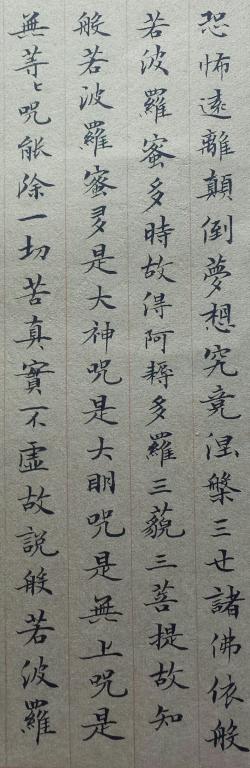 恐怖遠離顛倒夢想究竟涅槃三世諸佛依般
若波羅蜜多時故得阿耨多羅三藐三菩提故知
般若波羅蜜多是大神咒是大明咒是無上咒是
無等々咒能除一切苦真實不虛故說般若波羅